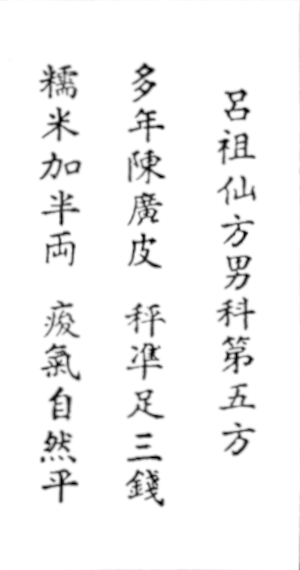 呂祖仙方男科第五方
多年陳廣皮 秤準足三錢
糯米加半両 痠氣自然平